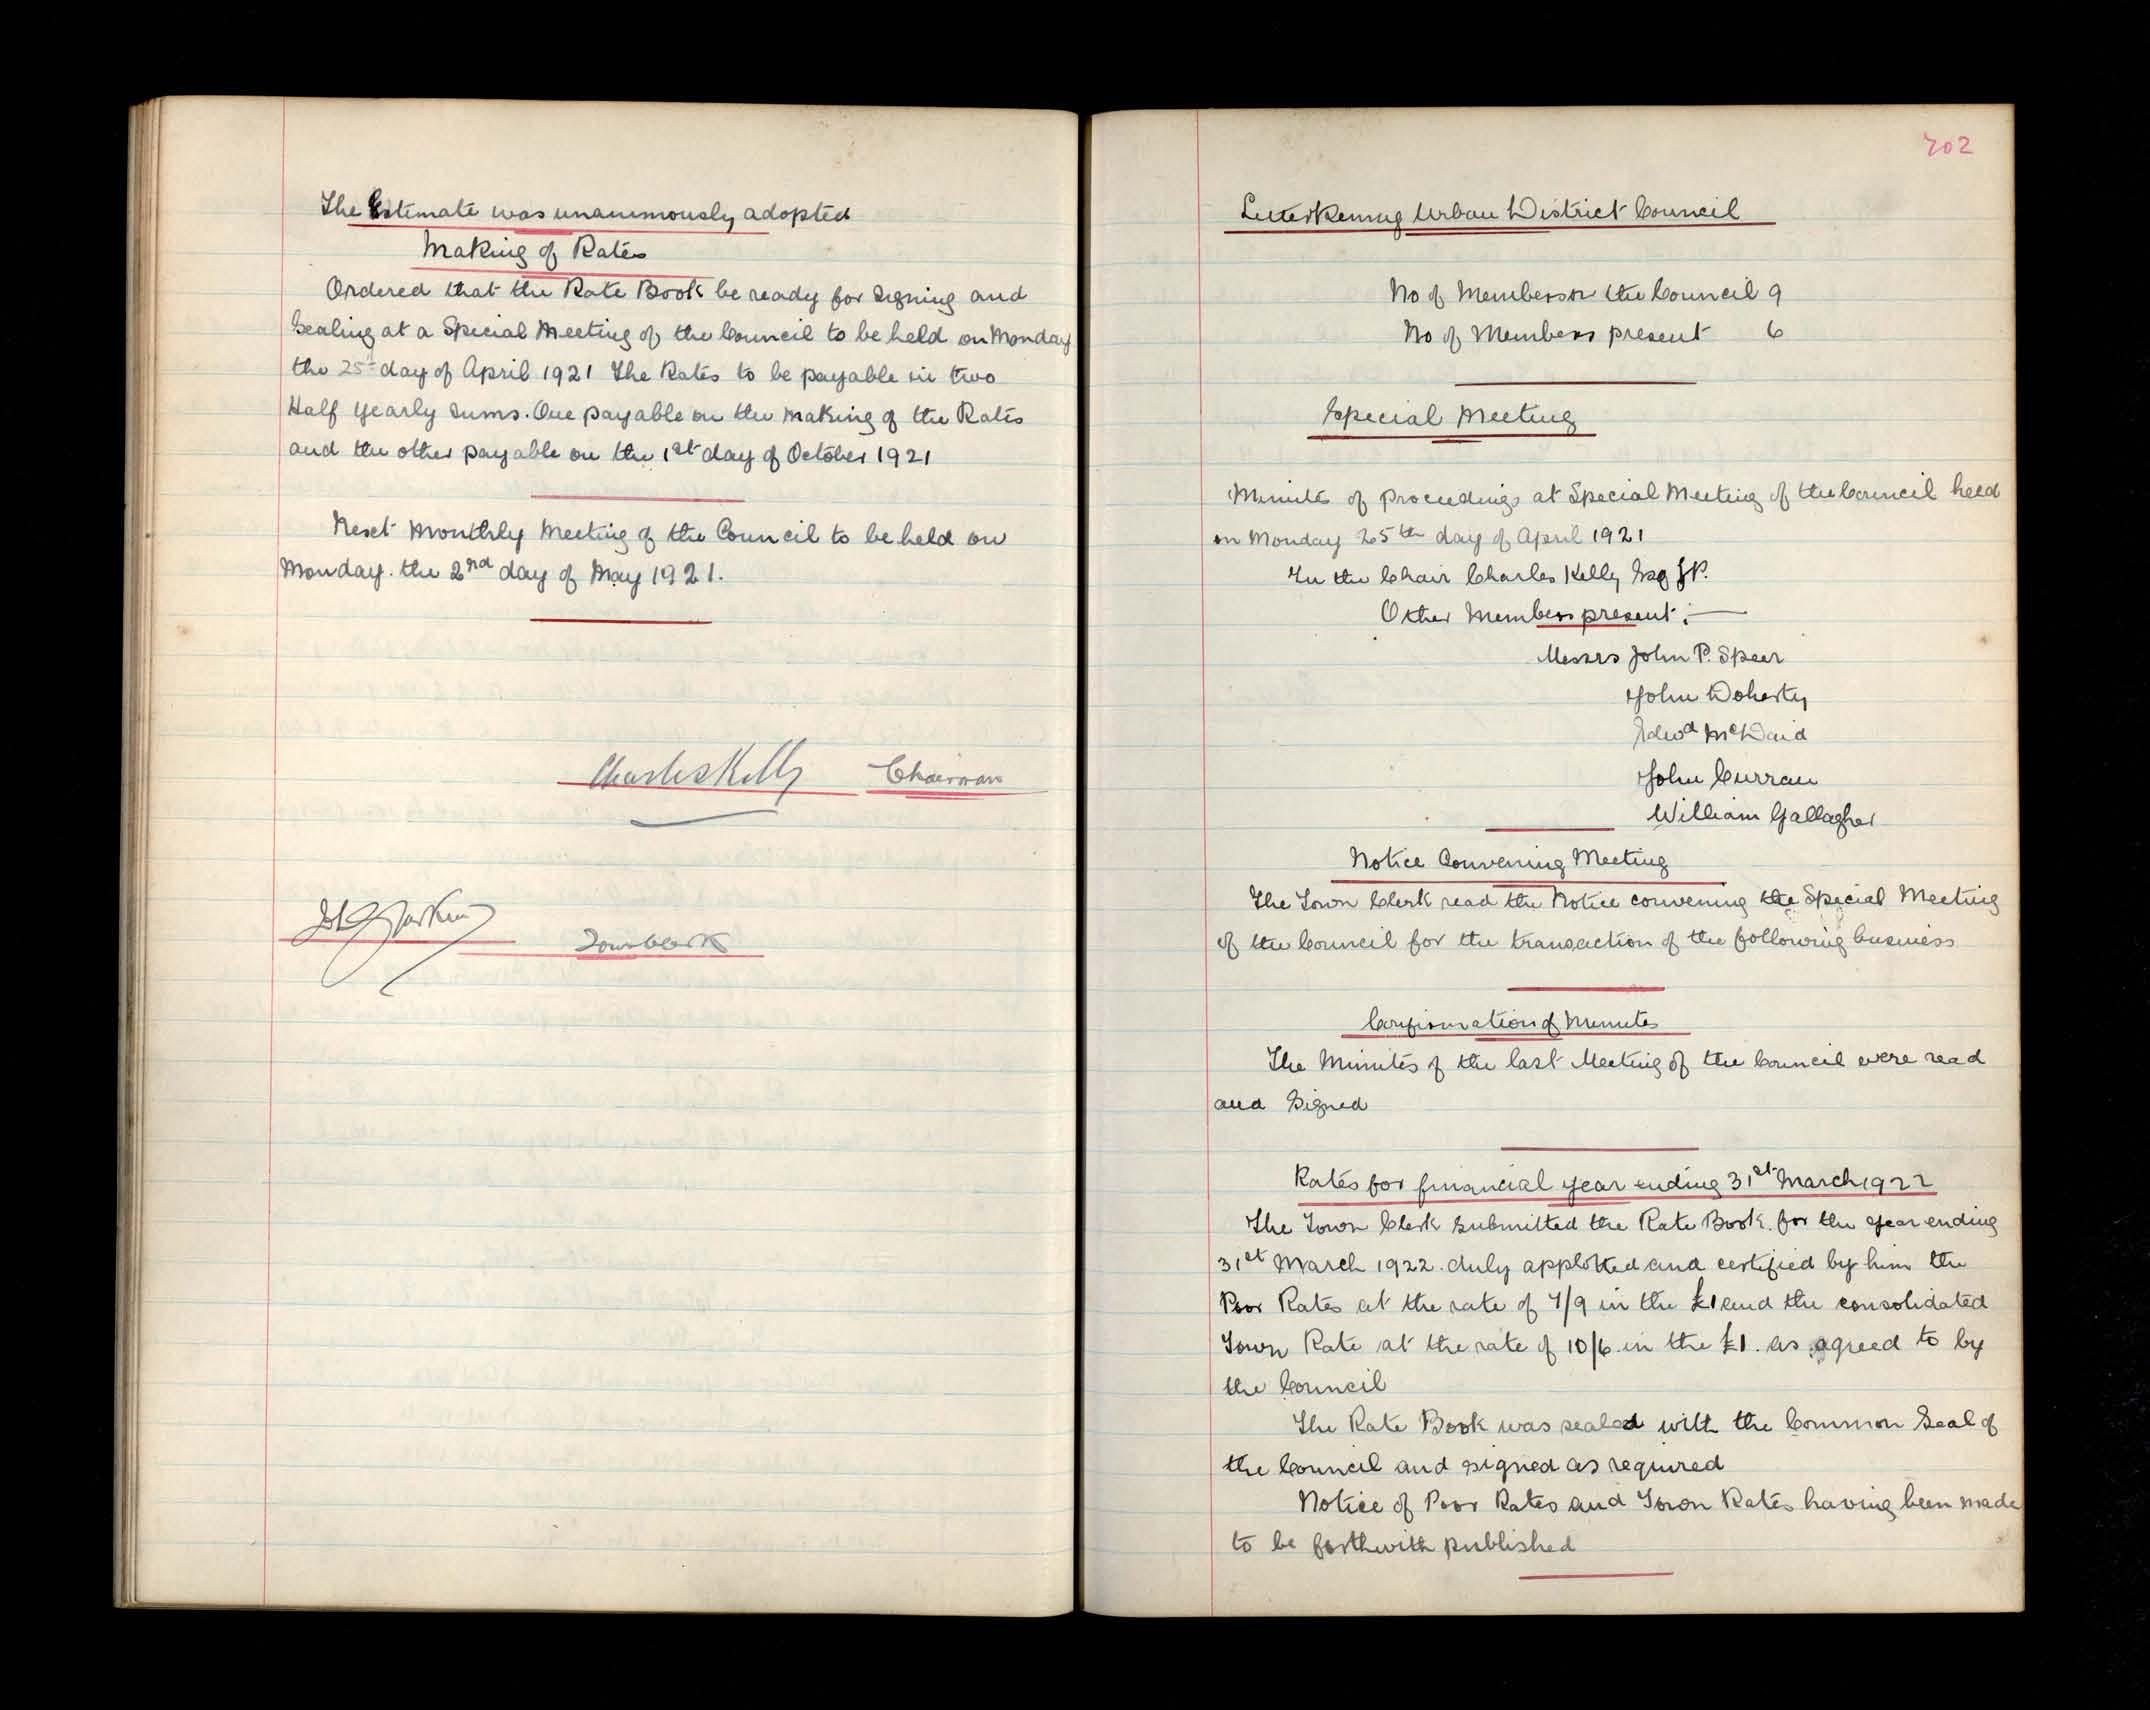 The Estimate was unanimously adopted
Making of Rates
Ordered that the Rate Book be ready for signing and
Sealing at a Special Meeting of the Council to be held on Monday
the 25th day of April 1921 The Rates to be payable in two
Half yearly sums. One payable on the making of the Rates
and the other payable on the 1st day of October 1921
Next Monthly Meeting of the Council to be held on
Monday. the 2nd day of May 1921.
Charles Kelly Chairman
Town Clerk
702
Letterkenny Urban District Council
No of Members on the Council 9
No of Members present 6
Special Meeting
Minutes of proceedings at Special Meeting of the Council held
on Monday 25th day of April 1921
In the Chair Charles Kelly Esq J.P.
Other Members present :-
Messrs John P. Speer
John Doherty
Edwd McDaid
John Curran
William Gallagher
Notice Convening Meeting
The Town Clerk read the Notice convening the Special Meeting
of the Council for the transaction of the following business
Confirmation of Minutes
The Minutes of the last Meeting of the Council were read
and Signed
Rates for financial year ending 31st March 1922
The Town Clerk submitted the Rate Book. for the year ending
31st March 1922. duly applotted and certified by him the
Poor Rates at the rate of 7/9 in the £1 and the consolidated
Town Rate at the rate of 10/6 in the £1. as agreed to by
the Council
The Rate Book was sealed with the Common Seal of
the Council and signed as required
Notice of Poor Rates and Town Rates having been made
to be forthwith published